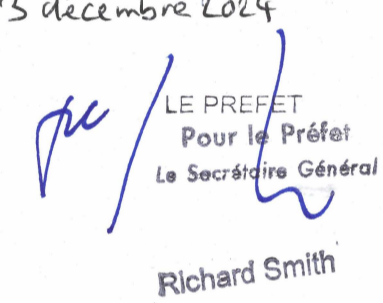 3 decembre 2024
LE PREFET
Pour le Préfet
Le Secrétaire Général
Richard Smith